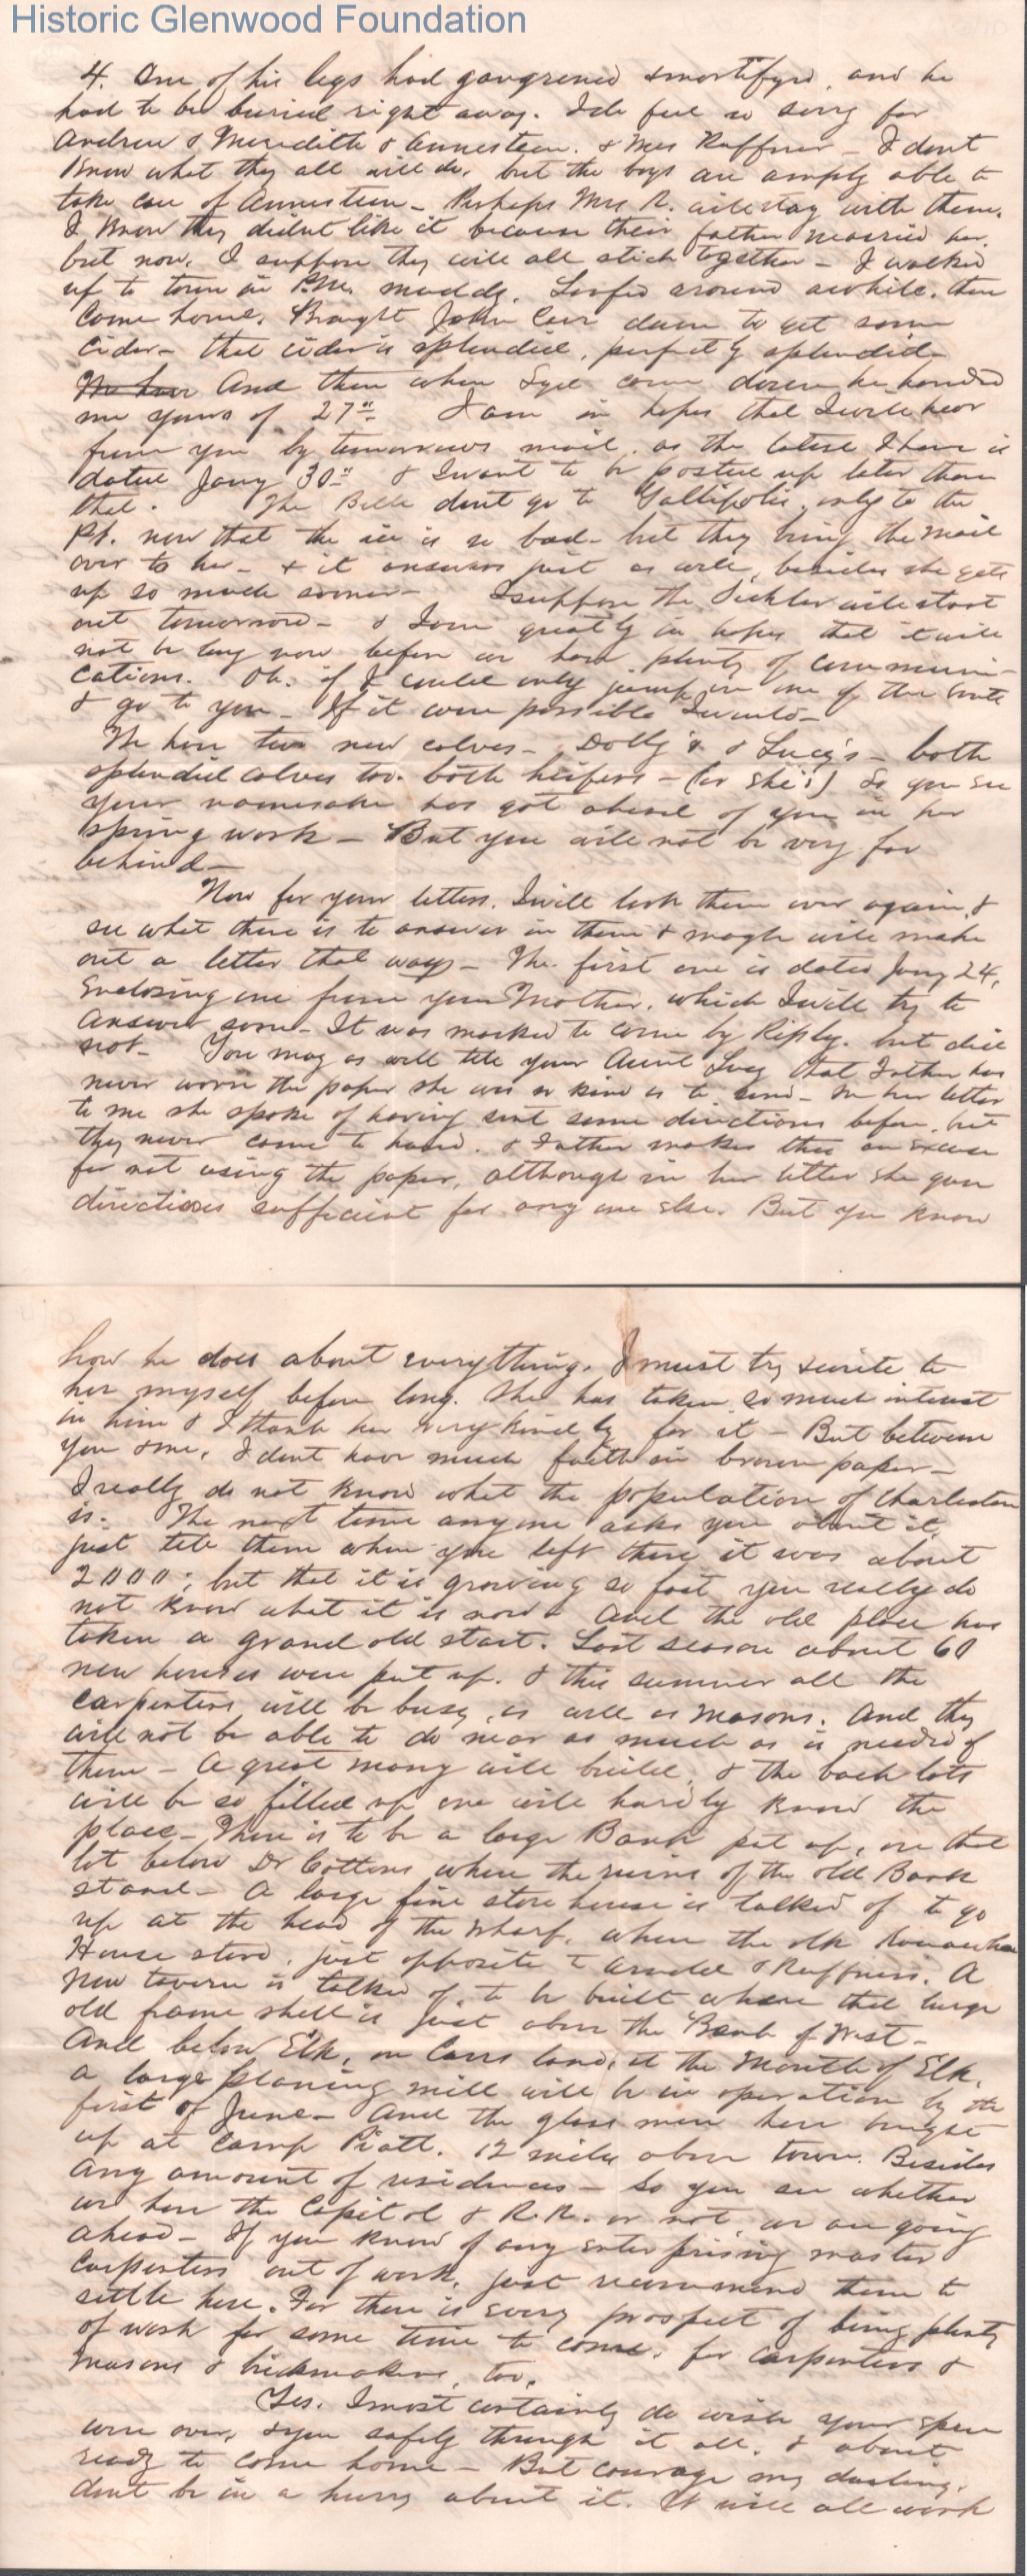 Historic Glenwood Foundation
4. One of his legs had gangrened & mortifyed, and he
had to be buried right away. I do feel so sorry for
Andrew & Meredith & Annesteen. & Mrs Ruffner - I dont
know what they all will do, but the boys are amply able to
take care of Annesteen - Perhaps Mrs R. will stay with them.
I know they didnt like it because their father married her,
but now, I suppose they will all stick together - I walked
up to town in P.M. muddy. Loafed around awhile, then
come home. Brought John Carr down to get some
Cider - that cider is splendid, perfectly splendid -
And then when Syd come down he handed
me yours of 27th I am in hopes that I will hear
from you by tomorrows mail, as the latest I have is
dated Jany 30th & I want to be posted up later than
that. The Belle dont go to Gallipolis, only to the
Pt. now that the ice is so bad - but they bring the mail
over to her - & it answers just as well, besides she gets
up so much sooner - I suppose the Tickler will start
out tomorrow - & I am greatly in hopes that it will
not be long now before we have plenty of communi-
cations. Oh. if I could only jump on one of the boats
& go to you - If it were possible I would -
We have two new calves - Dolly's & Lucy's - both
splendid calves too. both heifers - (or she's) So you see
your namesake has got ahead of you in her
spring work - But you will not be very far
behind -
Now for your letters. I will look them over again, &
see what there is to answer in them & maybe will make
out a letter that way - The first one is dated Jany 24,
Enclosing one from your Mother, which I will try to
answer soon - It was marked to come by Ripley, but did
not - You may as well tell your Aunt Lucy that Father has
never worn the paper she was so kind as to send - In her letter
to me she spoke of having sent some directions before, but
they never come to hand. & Father makes this an excuse
for not using the paper, although in her letter she gave
directions sufficient for any one else. But you know
how he does about everything. I must try & write to
her myself before long. She has taken so much interest
in him & I thank her very kindly for it - But between
you & me, I dont have much faith in brown paper -
I really do not know what the population of Charleston
is. The next time anyone asks you about it,
just tell them when you left there it was about
2000; but that it is growing so fast you really do
not know what it is now. And the old place has
taken a grand old start. Last season about 60
new houses were put up. & this summer all the
carpenters will be busy, as well as masons. And they
will not be able to do near as much as is needed of
them - A great many will build, & the back lots
will be so filled up one will hardly know the
place - There is to be a large Bank put up, on that
lot below Dr Cottons where the ruins of the old Bank
stand - A large fine store house is talked of to go
up at the head of the wharf, where the old Kanawha
House stood, just opposite to Arndel & Ruffners. A
New tavern is talked of, to be built where that large
old frame shell is just above the Bank of West -
And below Elk, on Carrs land, at the Mouth of Elk,
a large planing mill will be in operation by the
first of June - And the glass men have bought
up at Camp Piatt. 12 miles above town. Besides
any amount of residences - So you see whether
we have the Capitol & R.R. or not, we are going
ahead - If you know of any enterprising master
Carpenters out of work, just recommend them to
settle here. For there is every prospect of being plenty
of work for some time to come, for Carpenters &
masons & brickmakers, too.
Yes. I most certainly do wish your spree
were over, & you safely through it all, & about
ready to come home - But courage my darling,
dont be in a hurry about it. It will all work